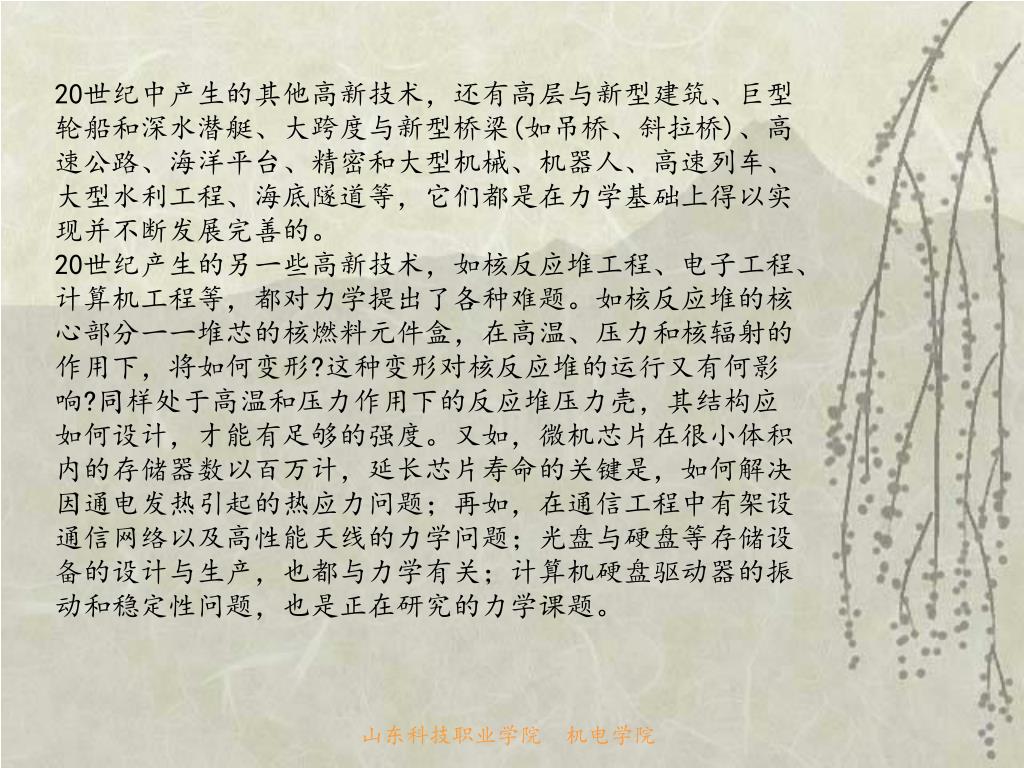 20世纪中产生的其他高新技术，还有高层与新型建筑、巨型
轮船和深水潜艇、大跨度与新型桥梁(如吊桥、斜拉桥)、高
速公路、海洋平台、精密和大型机械、机器人、高速列车、
大型水利工程、海底隧道等，它们都是在力学基础上得以实
现并不断发展完善的。
20世纪产生的另一些高新技术，如核反应堆工程、电子工程、
计算机工程等，都对力学提出了各种难题。如核反应堆的核
心部分一一堆芯的核燃料元件盒，在高温、压力和核辐射的
作用下，将如何变形?这种变形对核反应堆的运行又有何影
响?同样处于高温和压力作用下的反应堆压力壳，其结构应
如何设计，才能有足够的强度。又如，微机芯片在很小体积
内的存储器数以百万计，延长芯片寿命的关键是，如何解决
因通电发热引起的热应力问题；再如，在通信工程中有架设
通信网络以及高性能天线的力学问题；光盘与硬盘等存储设
备的设计与生产，也都与力学有关；计算机硬盘驱动器的振
动和稳定性问题，也是正在研究的力学课题。
山东科技职业学院 机电学院